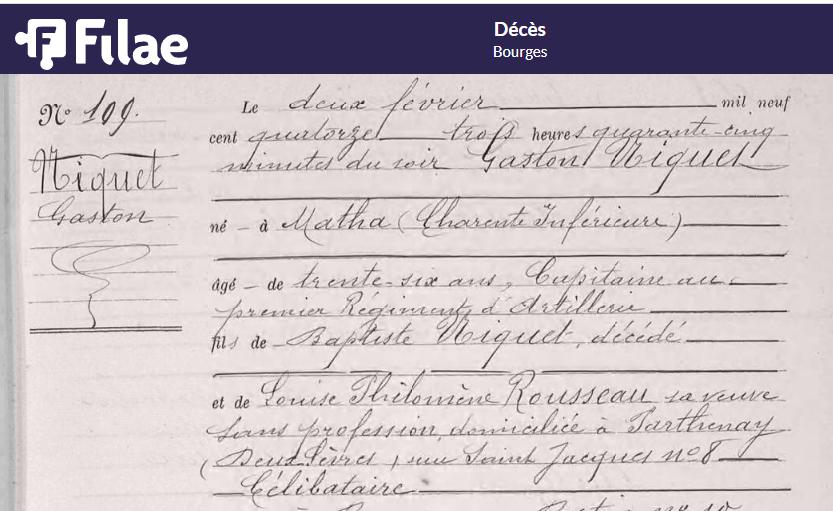 Filae
Décès
Bourges
No 109.
Niquet
Gaston
Le deux février mil neuf
cent quatorze trois heures quarante-cinq
minutes du soir Gaston Niquet
né - à Matha (Charente Inférieure)
âgé - de trente-six ans, Capitaine au
premier Régiment d'Artillerie
fils de Baptiste Niquet, décédé
et de Louise Philomène Rousseau sa veuve
sans profession, domiciliée à Parthenay
(Deux Sèvres), rue Saint Jacques no 8
Célibataire